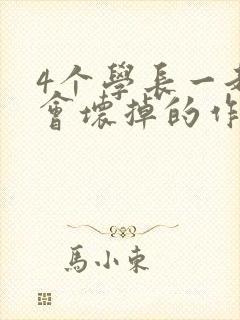 4个學長一起
會壞掉的作
馬小東